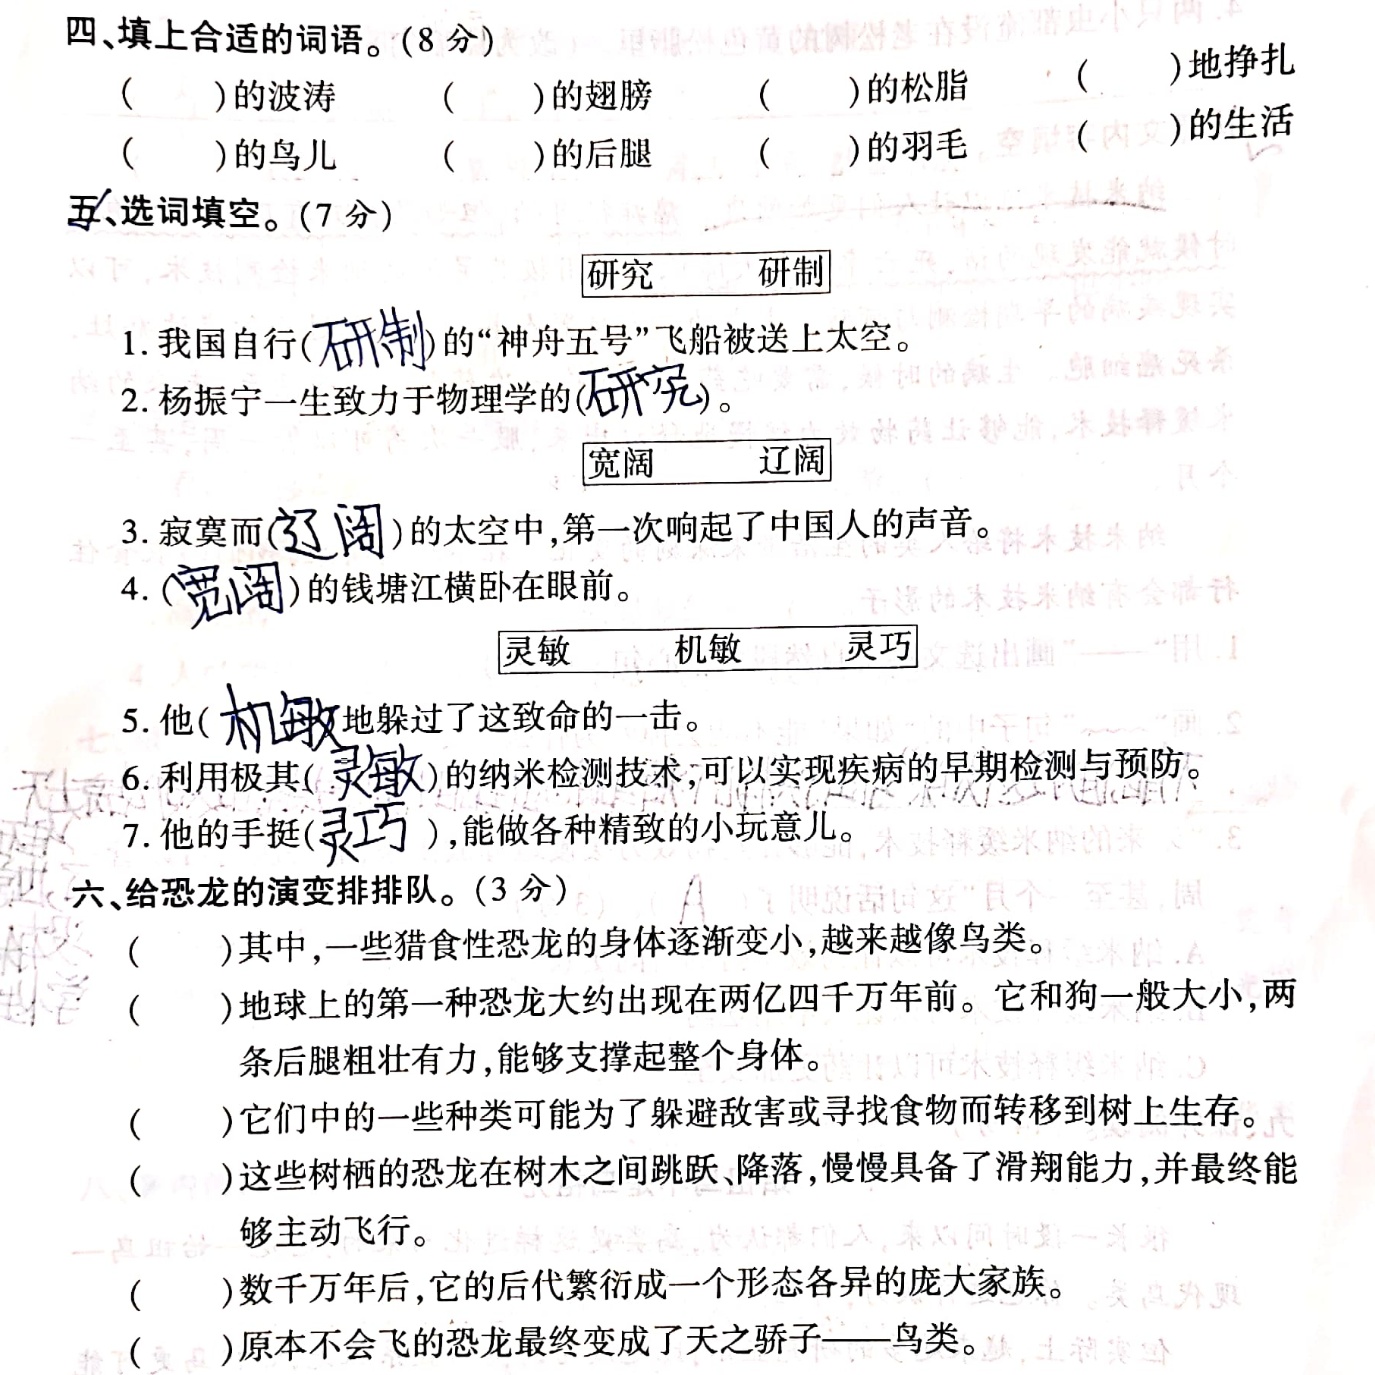 四、填上合适的词语。(8分)
(　　)的波涛　(　　)的翅膀　(　　)的松脂　(　　)地挣扎
(　　)的鸟儿　(　　)的后腿　(　　)的羽毛　(　　)的生活
五、选词填空。(7分)
研究　研制
1.我国自行(研制)的“神舟五号”飞船被送上太空。
2.杨振宁一生致力于物理学的(研究)。
宽阔　辽阔
3.寂寞而(辽阔)的太空中,第一次响起了中国人的声音。
4.(宽阔)的钱塘江横卧在眼前。
灵敏　机敏　灵巧
5.他(机敏)地躲过了这致命的一击。
6.利用极其(灵敏)的纳米检测技术,可以实现疾病的早期检测与预防。
7.他的手挺(灵巧),能做各种精致的小玩意儿。
六、给恐龙的演变排排队。(3分)
(　　)其中,一些猎食性恐龙的身体逐渐变小,越来越像鸟类。
(　　)地球上的第一种恐龙大约出现在两亿四千万年前。它和狗一般大小,两
条后腿粗壮有力,能够支撑起整个身体。
(　　)它们中的一些种类可能为了躲避敌害或寻找食物而转移到树上生存。
(　　)这些树栖的恐龙在树木之间跳跃、降落,慢慢具备了滑翔能力,并最终能
够主动飞行。
(　　)数千万年后,它的后代繁衍成一个形态各异的庞大家族。
(　　)原本不会飞的恐龙最终变成了天之骄子——鸟类。